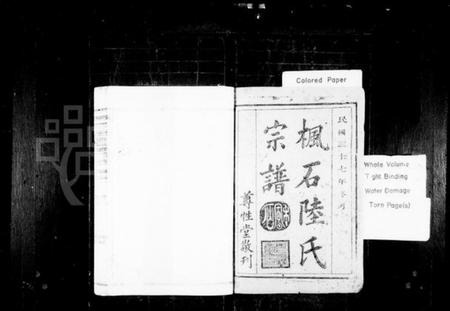 Colored Paper
民國三十七年冬月
楓石陸氏
宗譜
尊性堂敬刊
Whole Volume
Tight Binding
Water Damage
Torn Page(s)